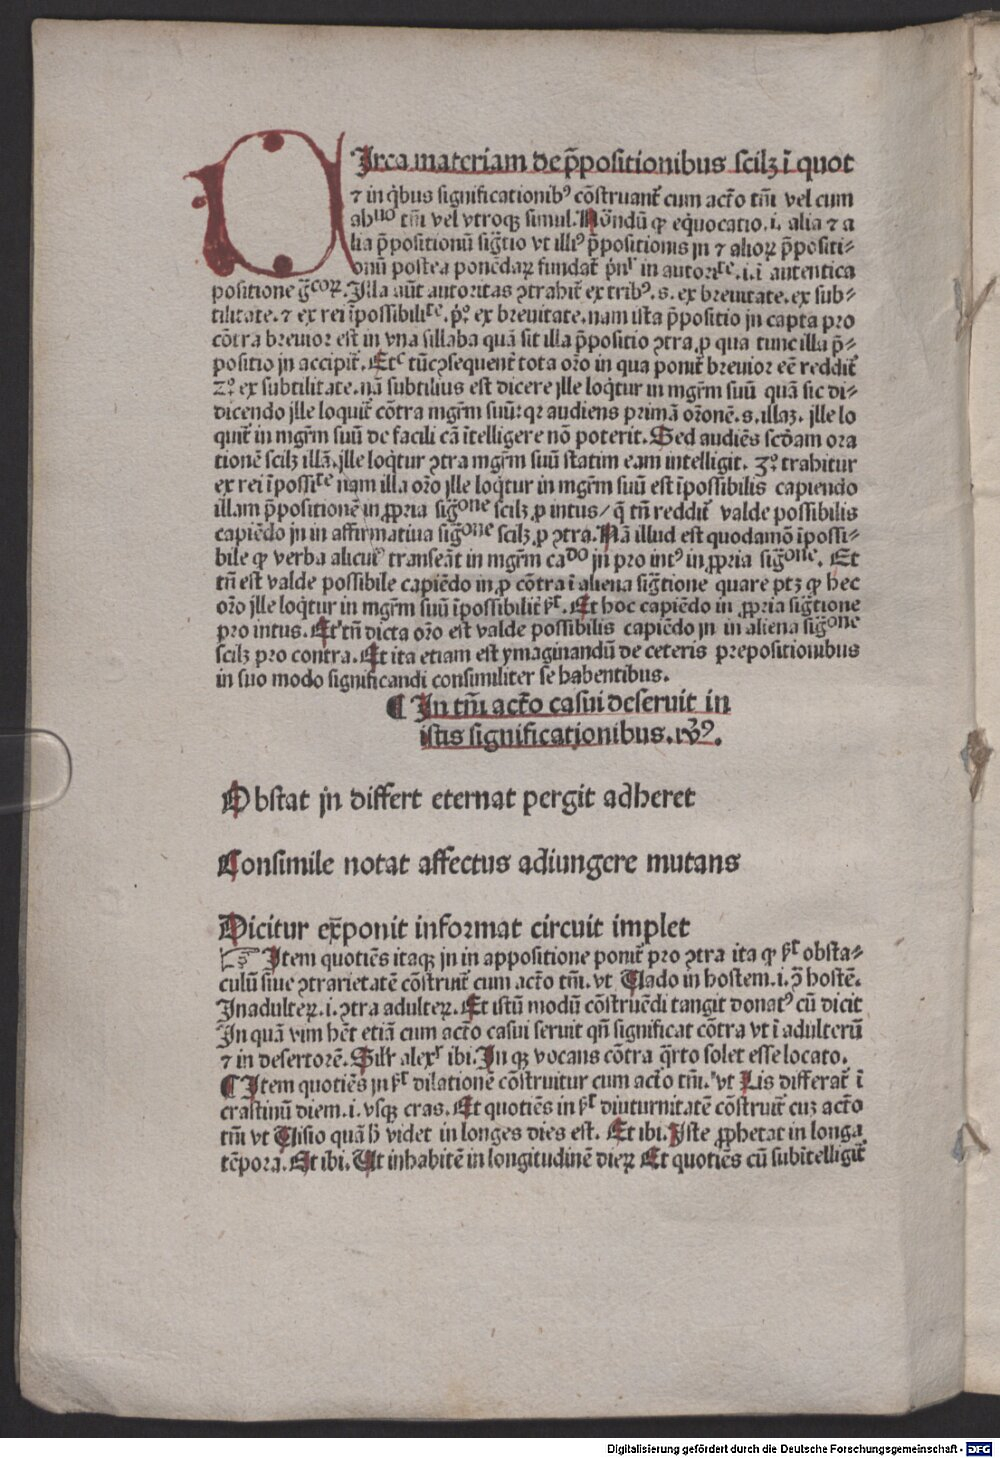 CIrca materiam de p̄positionibus scilꝫ ī quot
⁊ in q̇bus significationib⁹ cōstruant᷑ cum acto̅ tm̄ vel cum
abuo tm̄ vel vtroqꝫ simul. Nōndū ꝙ eq̇uocatio .i. alia ⁊ a
lia p̄positionū sig̅tio vt illi⁹ p̄positionis jn ⁊ alioꝝ p̄positi⸗
onū postea ponēdaꝝ fundat᷑ pn̄r in autorite .i. ī autentica
positione g̅coꝝ. Illa aūt autoritas ꝯtrahit᷑ ex trib⁹ .s. ex breuitate. ex sub⸗
tilitate. ⁊ ex rei īpossibilite. pº ex breuitate. nam ista p̄positio jn capta pro
cōtra breuior est in vna sillaba quā sit illa p̄positio ꝯtra. ꝓ qua tunc illa p̄⸗
positio jn accipit᷑. Etc tūcꝯsequent᷑ tota or̄o in qua ponit᷑ breuior eē reddit᷑
2º ex subtilitate. nā subtilius est dicere jlle loq̇tur in mgr̄m suū quā sic di⸗
dicendo jlle loquit᷑ cōtra mgr̄m suū: qꝛ audiens primā or̄onē .s. illaꝫ. jlle lo
quit᷑ in mgr̄m suū de facili cā ītelligere nō poterit. Sed audiēs scd̄am ora
tionē scilꝫ illā. jlle loq̇tur ꝯtra mgr̄m suū statim eam intelligit. 3º trahitur
ex rei īpossite nam illa or̄o jlle loq̇tur in mgr̄m suū est īpossibilis capiendo
illam p̄positionē in ꝓpria sig̅one scilꝫ ꝓ intus/ q̄ tn̄ reddit᷑ valde possibilis
capiēdo jn in affirmatiua sig̅one scilꝫ ꝓ ꝯtra. Nā illud est quodamō īpossi⸗
bile ꝙ verba alicui⁹ transeāt in mgr̄m cado jn pro int⁹ in ꝓpria sig̅one. Et
tn̄ est valde possibile capiēdo in ꝓ cōtra ī aliena sig̅tione quare ptꝫ ꝙ hec
or̄o jlle loq̇tur in mgr̄m suū īpossibilit᷑ p̄t. Et hoc capiēdo in ꝓpria sig̅tione
pro intus. Et tn̄ dicta or̄o est valde possibilis capiēdo jn in aliena sig̅one
scilꝫ pro contra. Et ita etiam est ymaginandū de ceteris prepositionibus
in suo modo significandi consimiliter se habentibus.
¶ In tm̄ acto̅ casui deseruit in
istis significationibus. vº.
Obstat jn differt eternat pergit adheret
Consimile notat affectus adiungere mutans
Dicitur ex̄ponit informat circuit implet
☞ Item quotiēs itaqꝫ jn in appositione ponit᷑ pro ꝯtra ita ꝙ p̄t obsta⸗
culū siue ꝯtrarietatē cōstruit᷑ cum acto̅ tm̄. vt Vado in hostem .i. ꝯ̄ hostē.
Inadulteꝝ .i. ꝯtra adulteꝝ. Et istū modū cōstruēdi tangit donat⁹ cū dicit
In quā vim hēt etiā cum acto̅ casui seruit qn̄ significat cōtra vt ī adulterū
⁊ in desertorē. Silr̄ alexr ibi. In qꝫ vocans cōtra q̄rto solet esse locato.
¶ Item quotiēs jn p̄t dilationē cōstruitur cum acto̅ tm̄. vt Lis differat᷑ ī
crastinū diem .i. vsqꝫ cras. Et quotiēs in p̄t diuturnitatē cōstruit᷑ cuꝫ acto̅
tm̄ vt Visio quā h̄ videt in longes dies est. Et ibi. Iste ꝓphetat in longa
tēpora. Et ibi. Ut inhabitē in longitudinē dieꝝ Et quotiēs cū subītelligit᷑
Digitalisierung gefördert durch die Deutsche Forschungsgemeinschaft - DFG